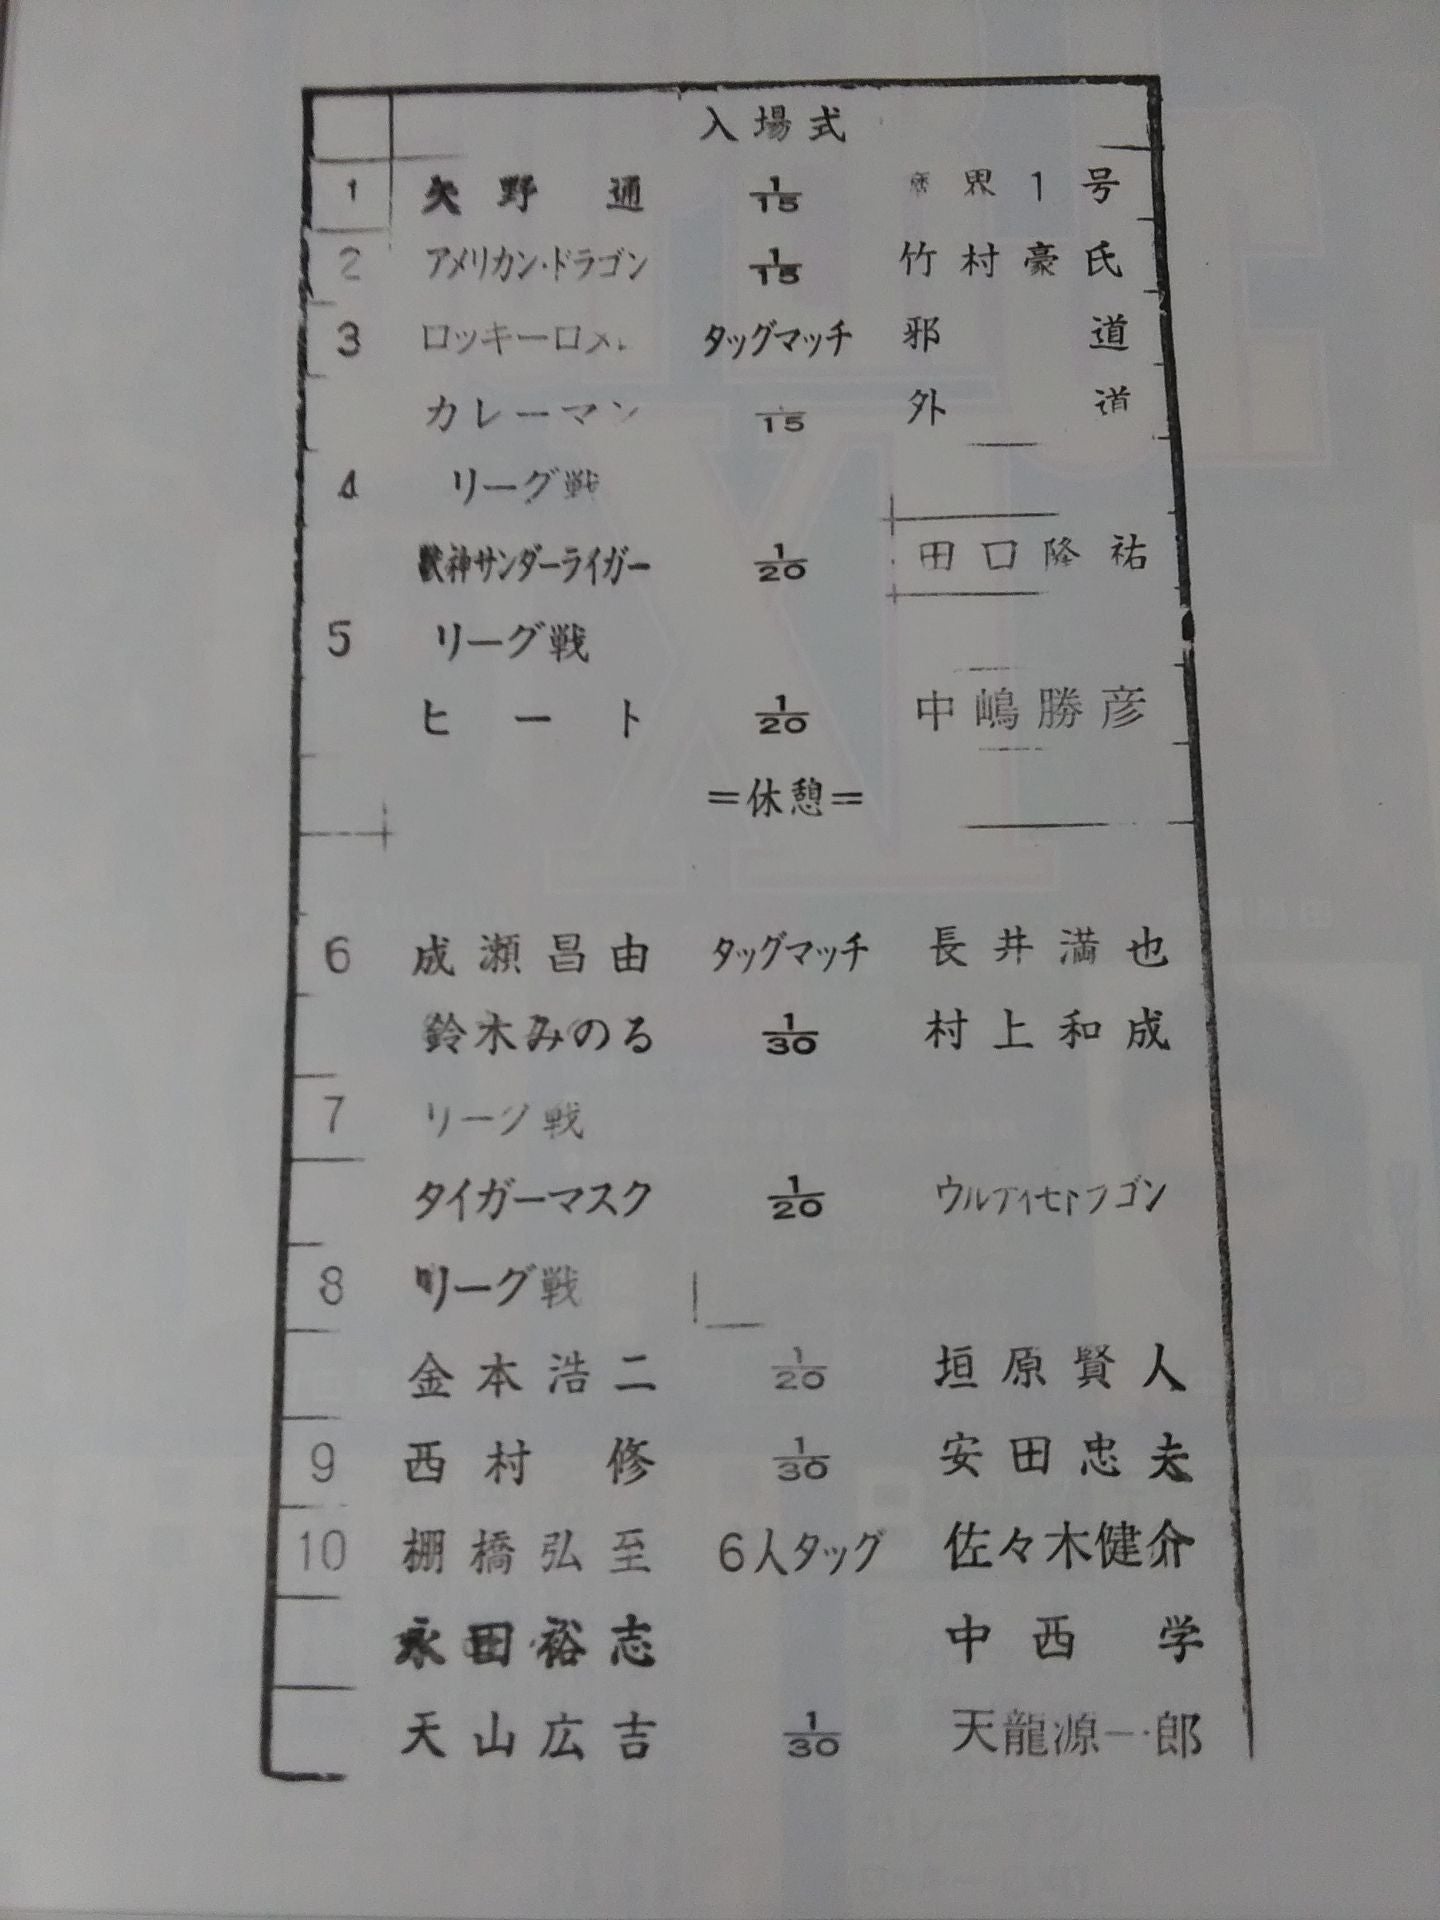 入場式
1 矢野通 1/15 魔界1号
2 アメリカン・ドラゴン 1/15 竹村豪氏
3 ロッキーロメロ タッグマッチ 邪道
カレーマン 1/15 外道
4 リーグ戦
獣神サンダーライガー 1/20 田口隆祐
5 リーグ戦
ヒート 1/20 中嶋勝彦
=休憩=
6 成瀬昌由 タッグマッチ 長井満也
鈴木みのる 1/30 村上和成
7 リーグ戦
タイガーマスク 1/20 ウルティモドラゴン
8 リーグ戦
金本浩二 1/20 垣原賢人
9 西村修 1/30 安田忠夫
10 棚橋弘至 6人タッグ 佐々木健介
永田裕志 中西学
天山広吉 1/30 天龍源一郎